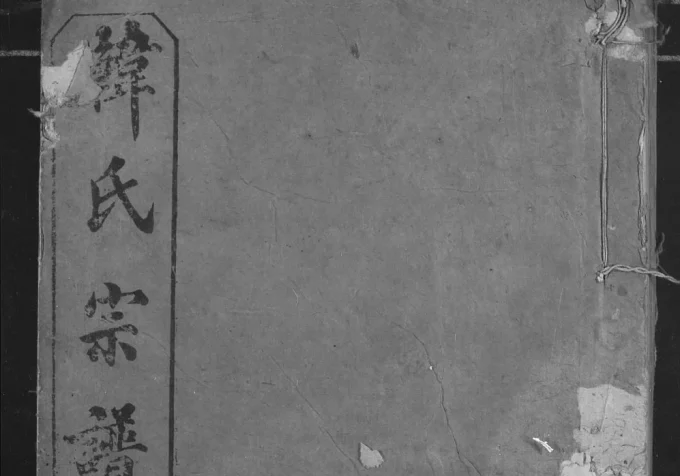 韓氏宗譜